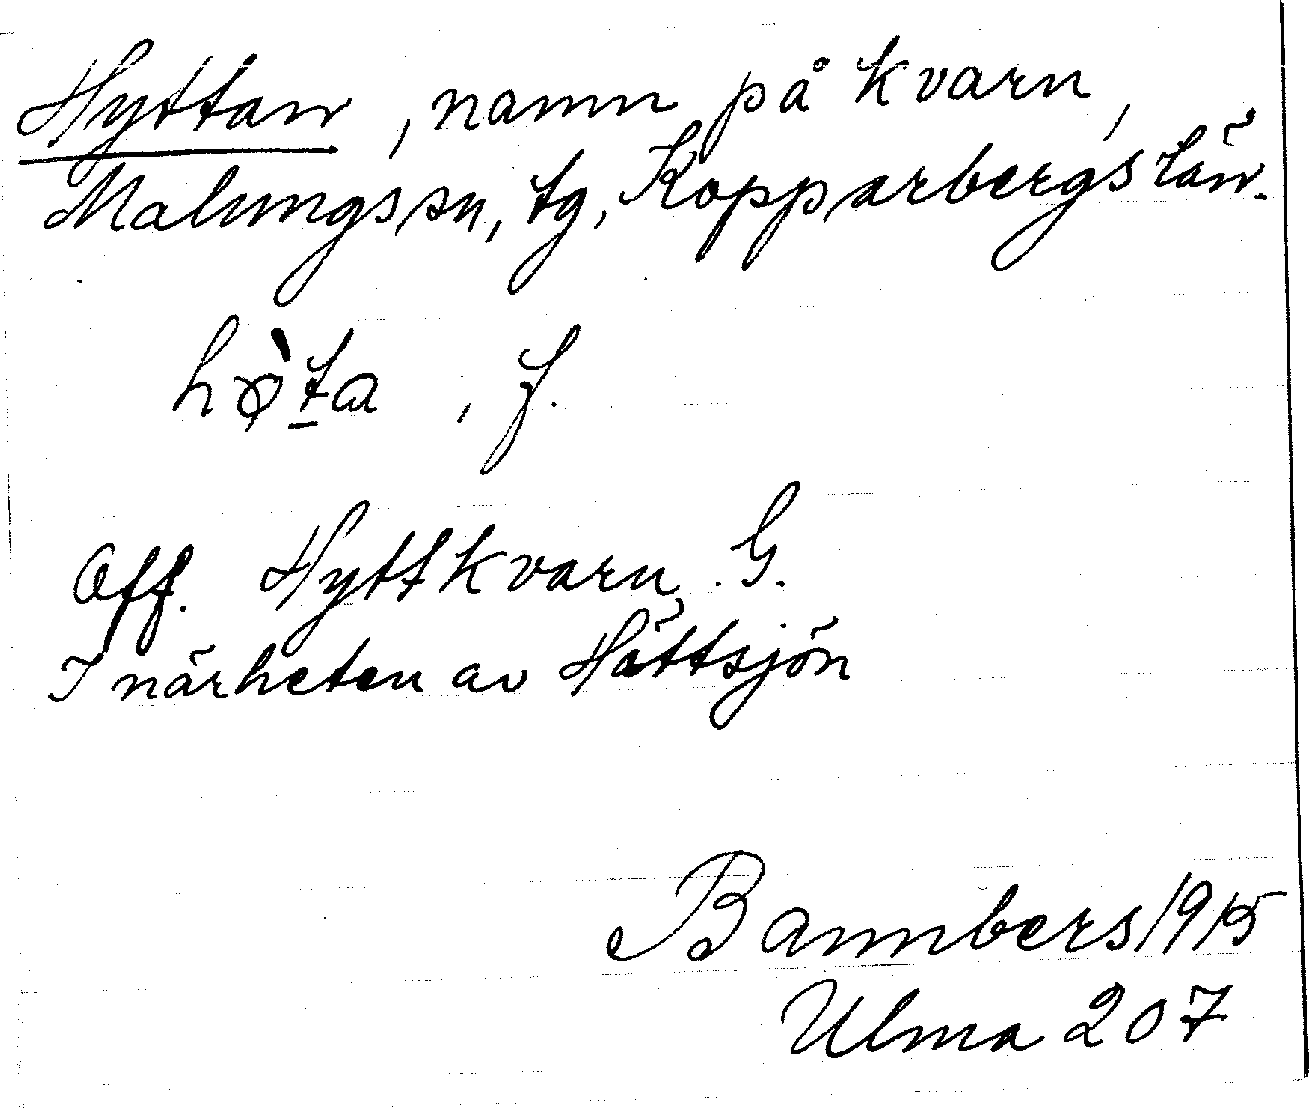 Hyttan, namn på kvarn,
Malungs sn, tg, Kopparbergs län.
hø̀ta, f.
Off. Hyttkvarn G.
I närheten av Hättsjön
Bannbers 1915
Ulma 207